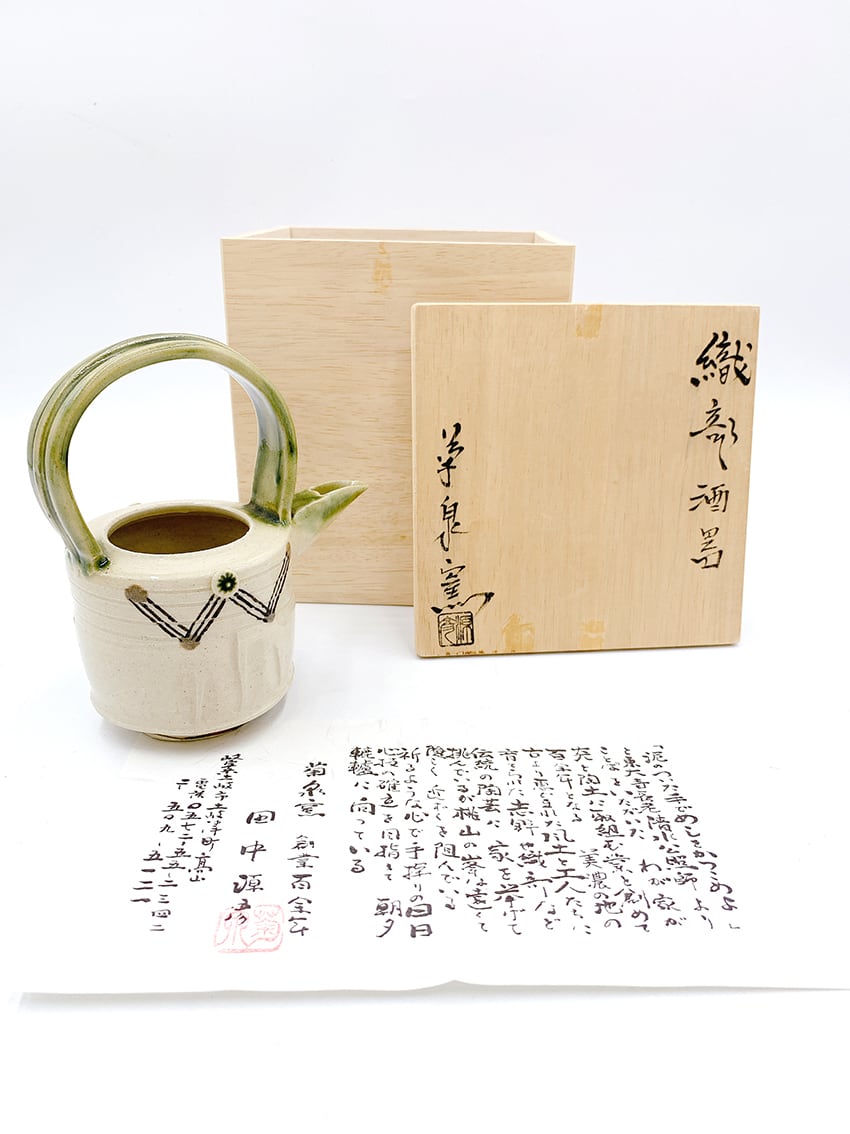 織部酒器
菊泉窯
「泥のついた手でめしをかっこめよ」
と東大寺長老清水公照師より
ことばをいただいた わが家が
炎と陶土に取組む業を創めて
百余年となる 美濃の地の
古より恵まれた風土と工人たちに
育まれた志野や織部など
伝統の陶芸に 家を挙げて
挑んでいるが桃山の峯は遠くて
険しく 近よるを阻んでいる
祈るような心で手探りの毎日
心技の確立を目指して 朝夕
轆轤に向っている
菊泉窯 創業百余年
田中源
土岐市土岐津町高山
電話〇五七二-五五-二三四二
〒五〇九-五一二一